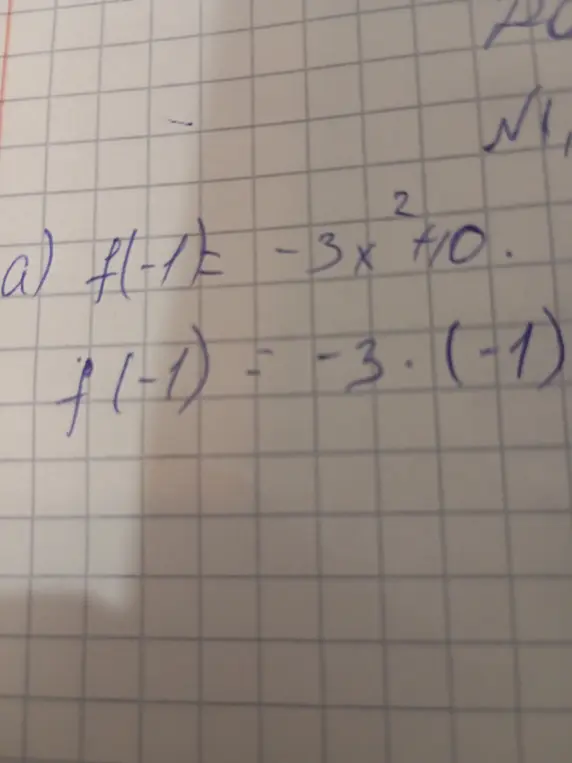 N1,
a) f(-1)= -3x²+10.
f(-1) = -3·(-1)